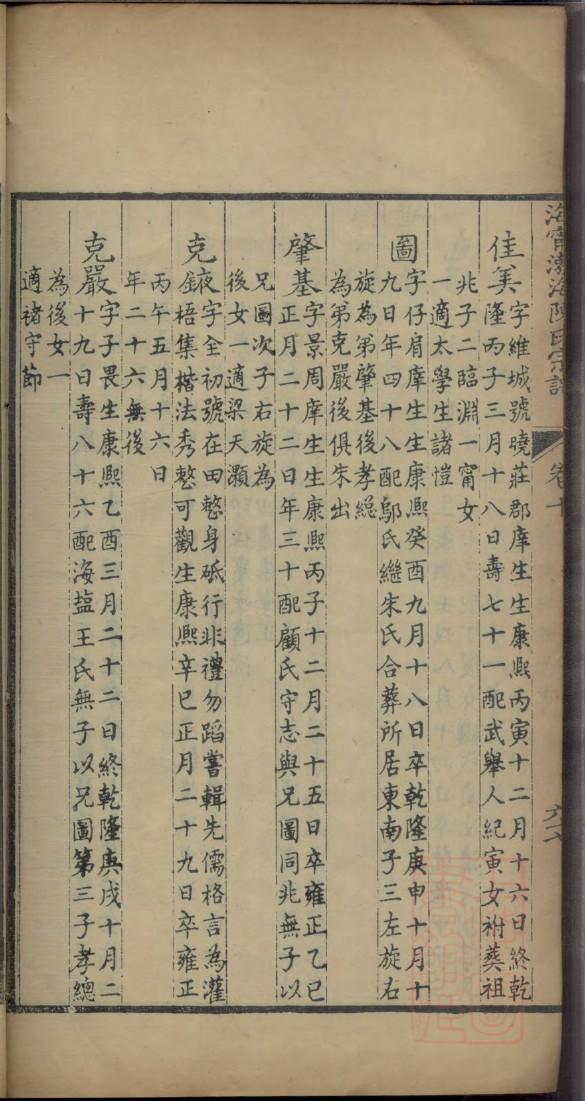 海寧渤海陳氏宗譜
卷十
佳美
字維城號曉莊郡庠生生康熙丙寅十二月十六日終乾
隆丙子三月十八日壽七十一配武舉人紀寅女祔葬祖
兆子二臨淵一甯女
一適太學生諸愷
圖
字仔肩庠生生康熙癸酉九月十八日卒乾隆庚申十月十
九日年四十八配鄔氏繼朱氏合葬所居東南子三左旋右
旋為第肇基後孝緫
為弟克嚴後俱朱出
肇基
字景周庠生生康熙丙子十二月二十五日卒雍正乙巳
正月二十二日年三十配顧氏守志與兄圖同兆無子以
兄圖次子右旋為
後女一適梁天灝
克鋐
字全初號在田整身砥行非禮勿蹈嘗輯先儒格言為灌
梧集楷法秀整可觀生康熙辛巳正月二十九日卒雍正
丙午五月十六日
年二十六無後
克嚴
字子畏生康熙乙酉三月二十二日終乾隆庚戌十月二
十九日壽八十六配海塩王氏無子以兄圖第三子孝總
為後女一
適褚守節